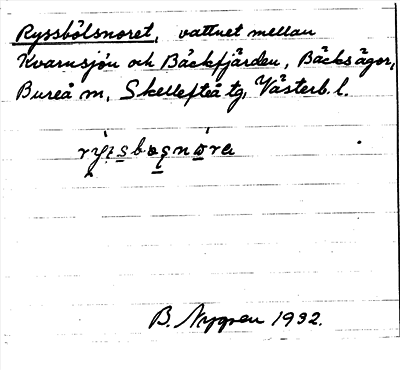 Ryssbölsnoret, vattnet mellan
Kvarnsjön och Bäckfjärden, Bäcksågor,
Bureå m, Skellefteå tg, Västerb. l.
B. Nygren 1932.